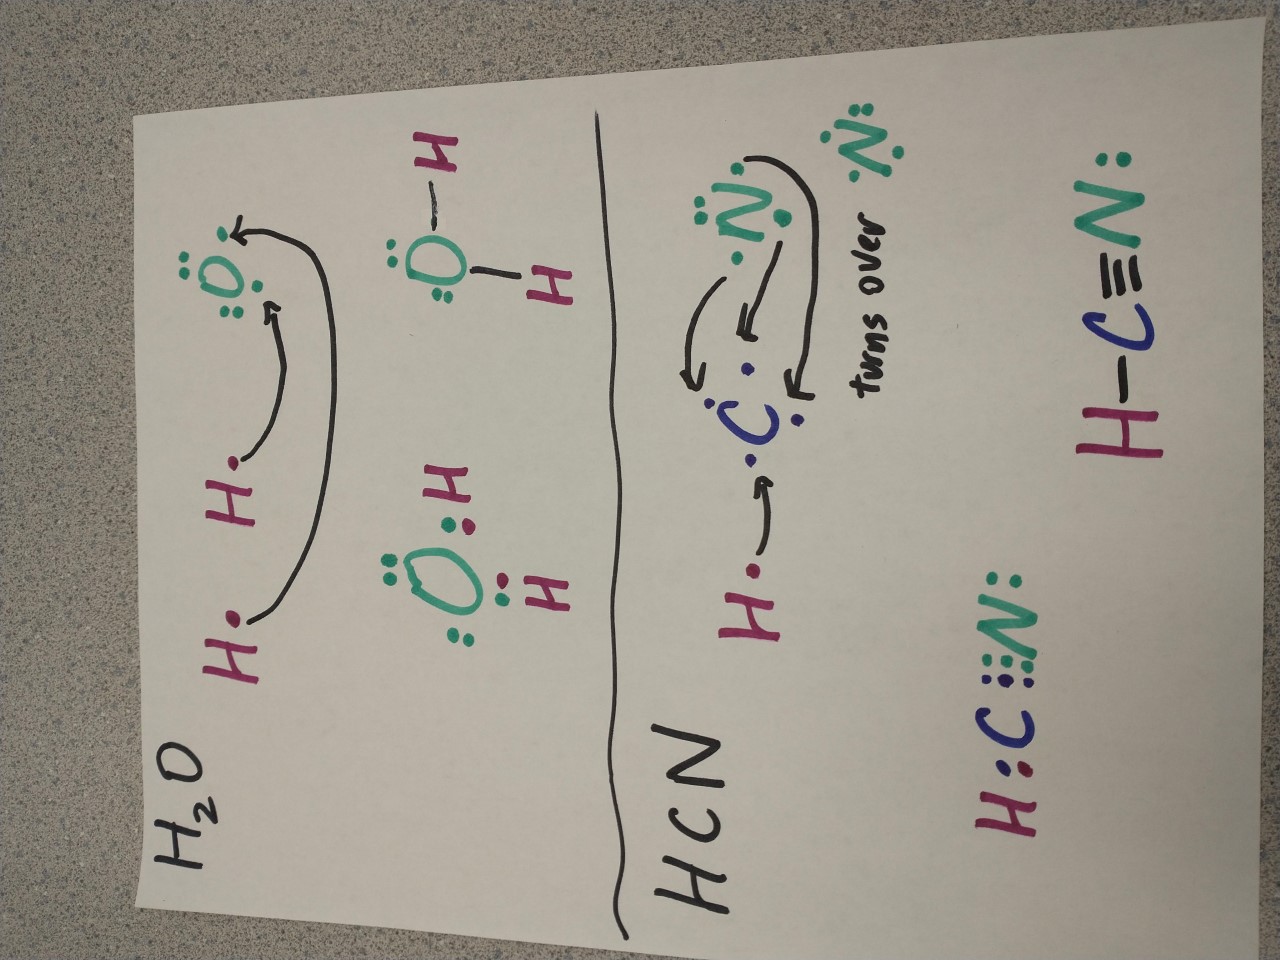 H₂O H· H· :Ö·
:Ö:H :Ö–H
H H
HCN H· ·C· ·N·
turns over :N:
H:C⋮⋮N:
H–C≡N: